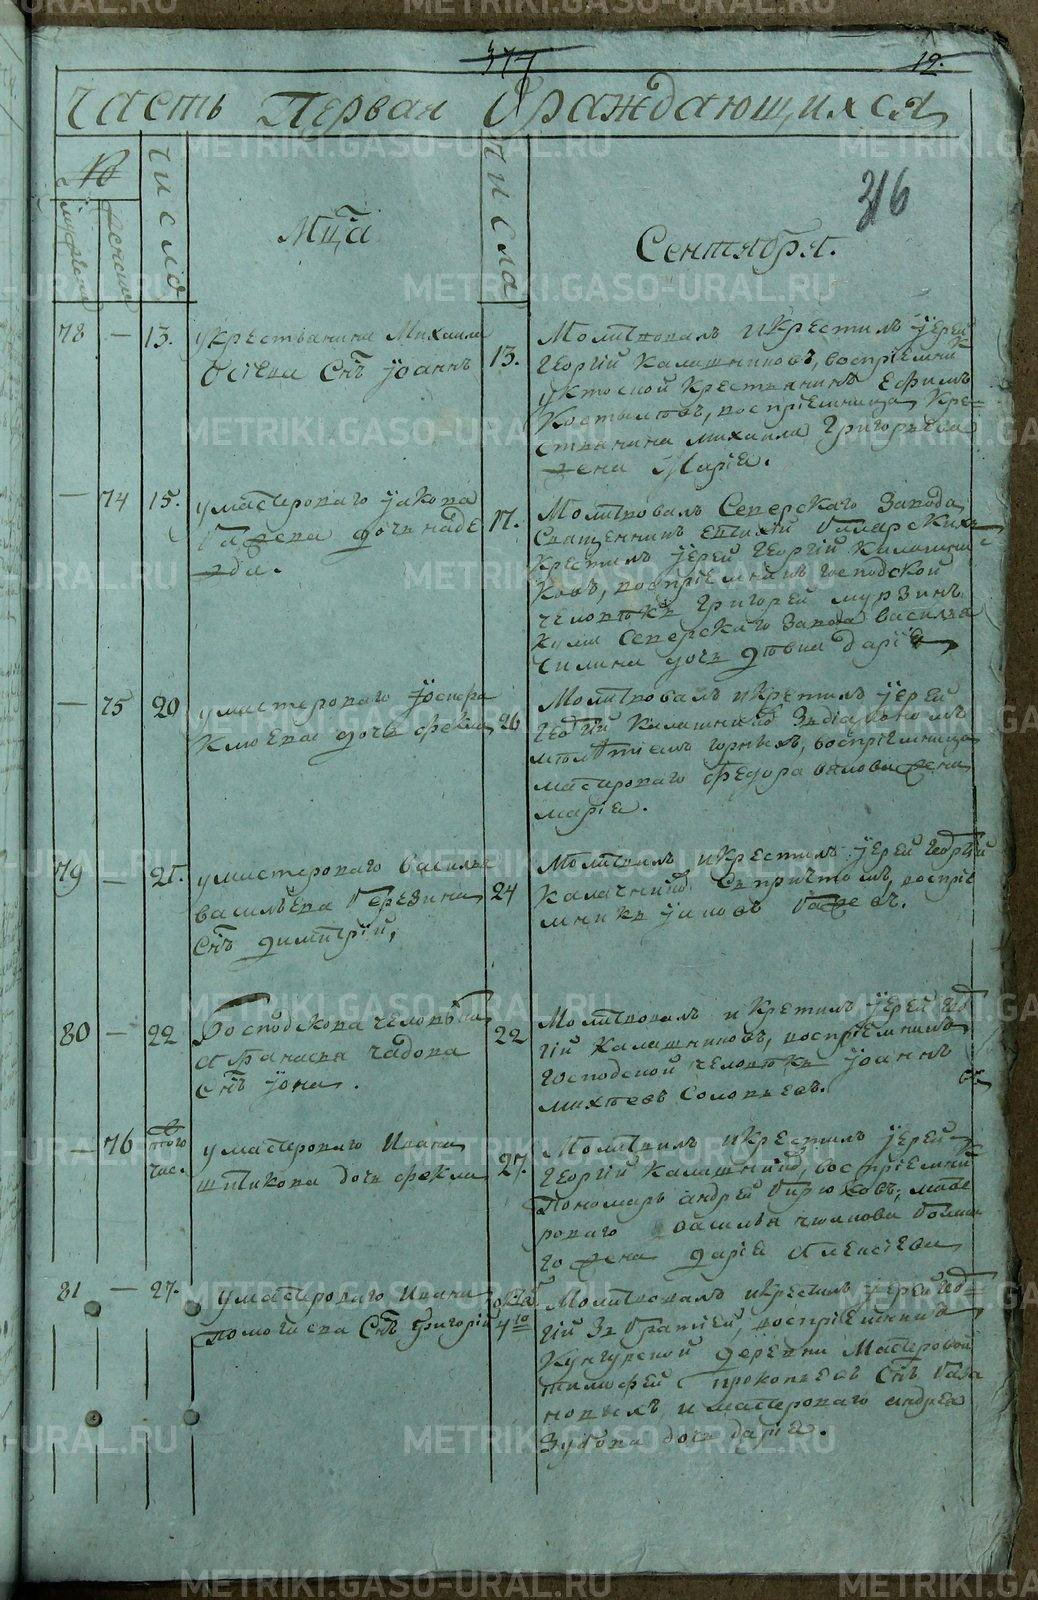 377
12.
Часть Первая Ораждающихся
216
№
мужеска
женска
число
Мца
числа
Сентября.
78 — 13. укрестьянина Михаила
Осіева Снъ Іоаннъ
13. Молитвовалъ иКрестилъ Іерей
Георгій Калашниковъ, воспріемник
уктоской Крестьянинъ Ефимъ
Костылевъ, воспріемница Кре-
стьянина михаила Григорьева
жена Марія.
— 74 15. умастероваго Іакова
дочь наде
жда.
17. Молитвовалъ Северскаго Завода
Священникъ
Крестилъ Іерей Георгій Калашни
ковъ, воспріемникъ Господской
человѣкъ Григорей мурзинъ
кума Северскаго Завода василья
Чилина дочь девица дарія
— 75 20 умастероваго Іосифа
Клюева дочь фекла
20 Молитвовалъ икрестилъ Іерей
Георгій Калашников здіакономъ
горныхъ, воспріемница
мастероваго Федора жена
марія.
79 — 21. умастероваго василья
васильева Березина
Снъ димитрій,
24 Молитвовалъ икрестилъ Іерей Георгій
Калашников Съ причтомъ, воспріе
мникъ
80 — 22 Господскова человѣка
Афанасья чадова
Снъ Іона.
22 Молитвовалъ и Крестилъ Іерей Геор
гій Калашниковъ, воспріемникъ
Господской человѣкъ Іоаннъ
михѣевъ Соловьевъ.
— 76 того
чис. умастероваго Ивана
шпикова дочь фекла
27. Молитвовалъ икрестилъ Іерей
Георгій Калашников, воспріемник
Пономарь андрей Бирюковъ, масте
роваго василья
го жена дарія Алексіева
81 — 27. умастероваго Ивана
Снъ григорій
окт
4го Молитвовалъ икрестилъ Іерей Геор
гій Зъ братіей, воспріемник
Кунгурской деревни Мастеровой
тимофей прокопьевъ Снъ
новыхъ и мастероваго андрея
Зубова дочь дарія.
METRIKI.GASO-URAL.RU